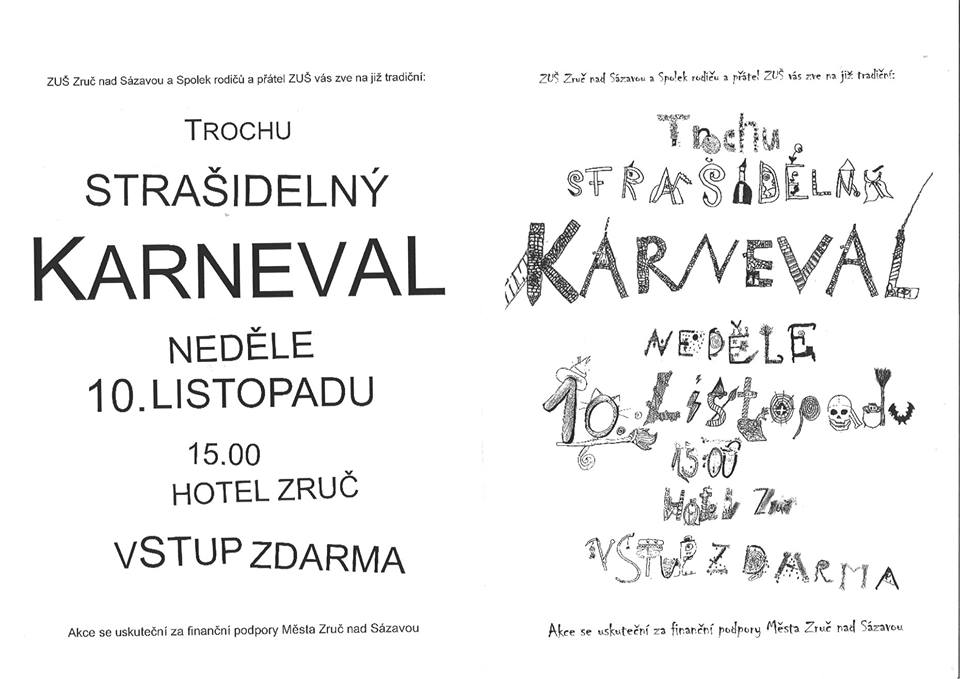 ZUŠ Zruč nad Sázavou a Spolek rodičů a přátel ZUŠ vás zve na již tradiční:
TROCHU
STRAŠIDELNÝ
KARNEVAL
NEDĚLE
10. LISTOPADU
15.00
HOTEL ZRUČ
VSTUP ZDARMA
Akce se uskuteční za finanční podpory Města Zruč nad Sázavou
ZUŠ Zruč nad Sázavou a Spolek rodičů a přátel ZUŠ vás zve na již tradiční:
Trochu
STRAŠIDELNÝ
KARNEVAL
NEDĚLE
10. Listopadu
15:00
Hotel Zruč
VSTUP ZDARMA
Akce se uskuteční za finanční podpory Města Zruč nad Sázavou